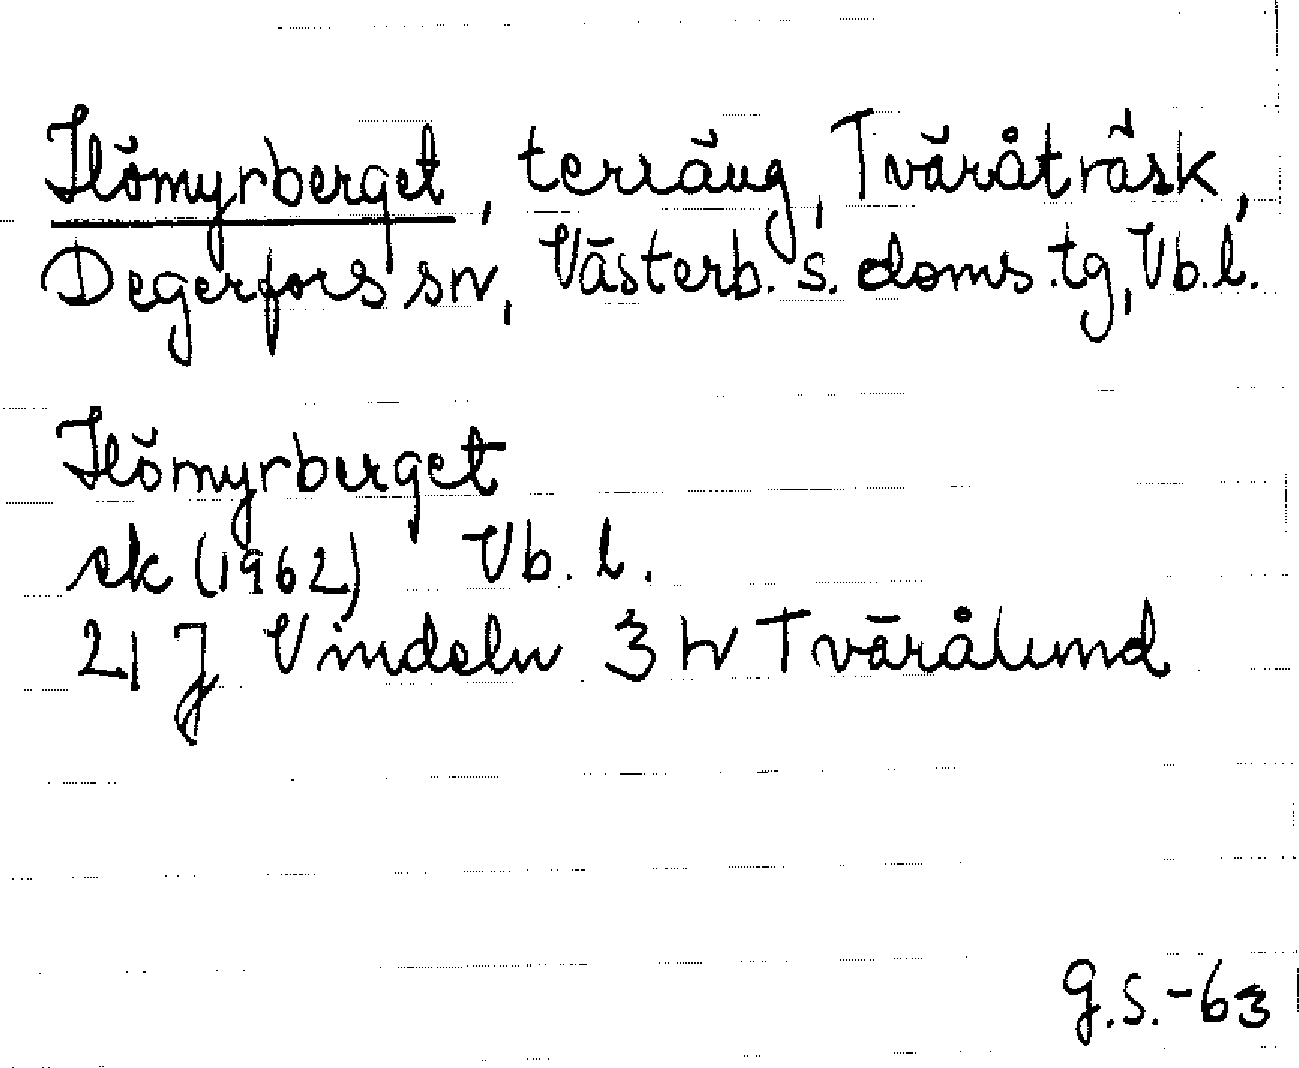 Hömyrberget, terräng, Tväråträsk,
Degerfors sn, Västerb. s. doms.tg, Vb.l.
Hömyrberget
sk (1962) Vb. l.
21 J Vindeln 3 h Tvärålund
G.S.-63